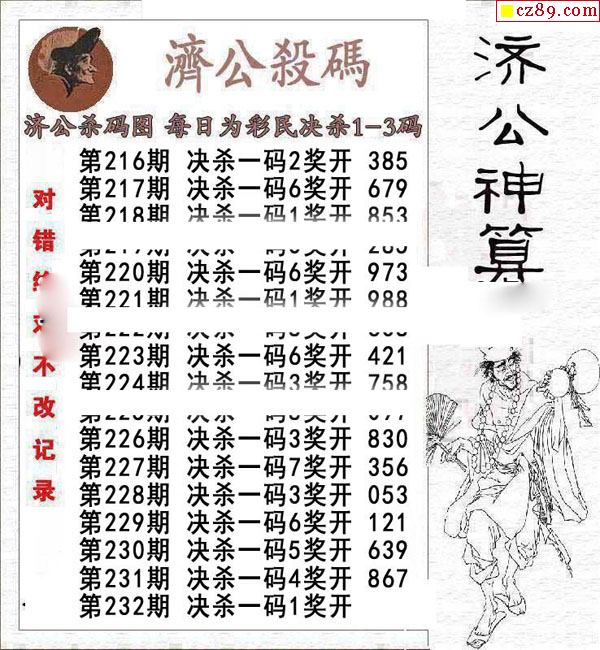 cz89.com
濟公殺碼
济公杀码图 每日为彩民决杀1-3码
第216期 决杀一码2奖开 385
第217期 决杀一码6奖开 679
第218期 决杀一码1奖开 853
第220期 决杀一码6奖开 973
第221期 决杀一码1奖开 988
第223期 决杀一码6奖开 421
第224期 决杀一码3奖开 758
第226期 决杀一码3奖开 830
第227期 决杀一码7奖开 356
第228期 决杀一码3奖开 053
第229期 决杀一码6奖开 121
第230期 决杀一码5奖开 639
第231期 决杀一码4奖开 867
第232期 决杀一码1奖开
对错 不改记录
济公神算